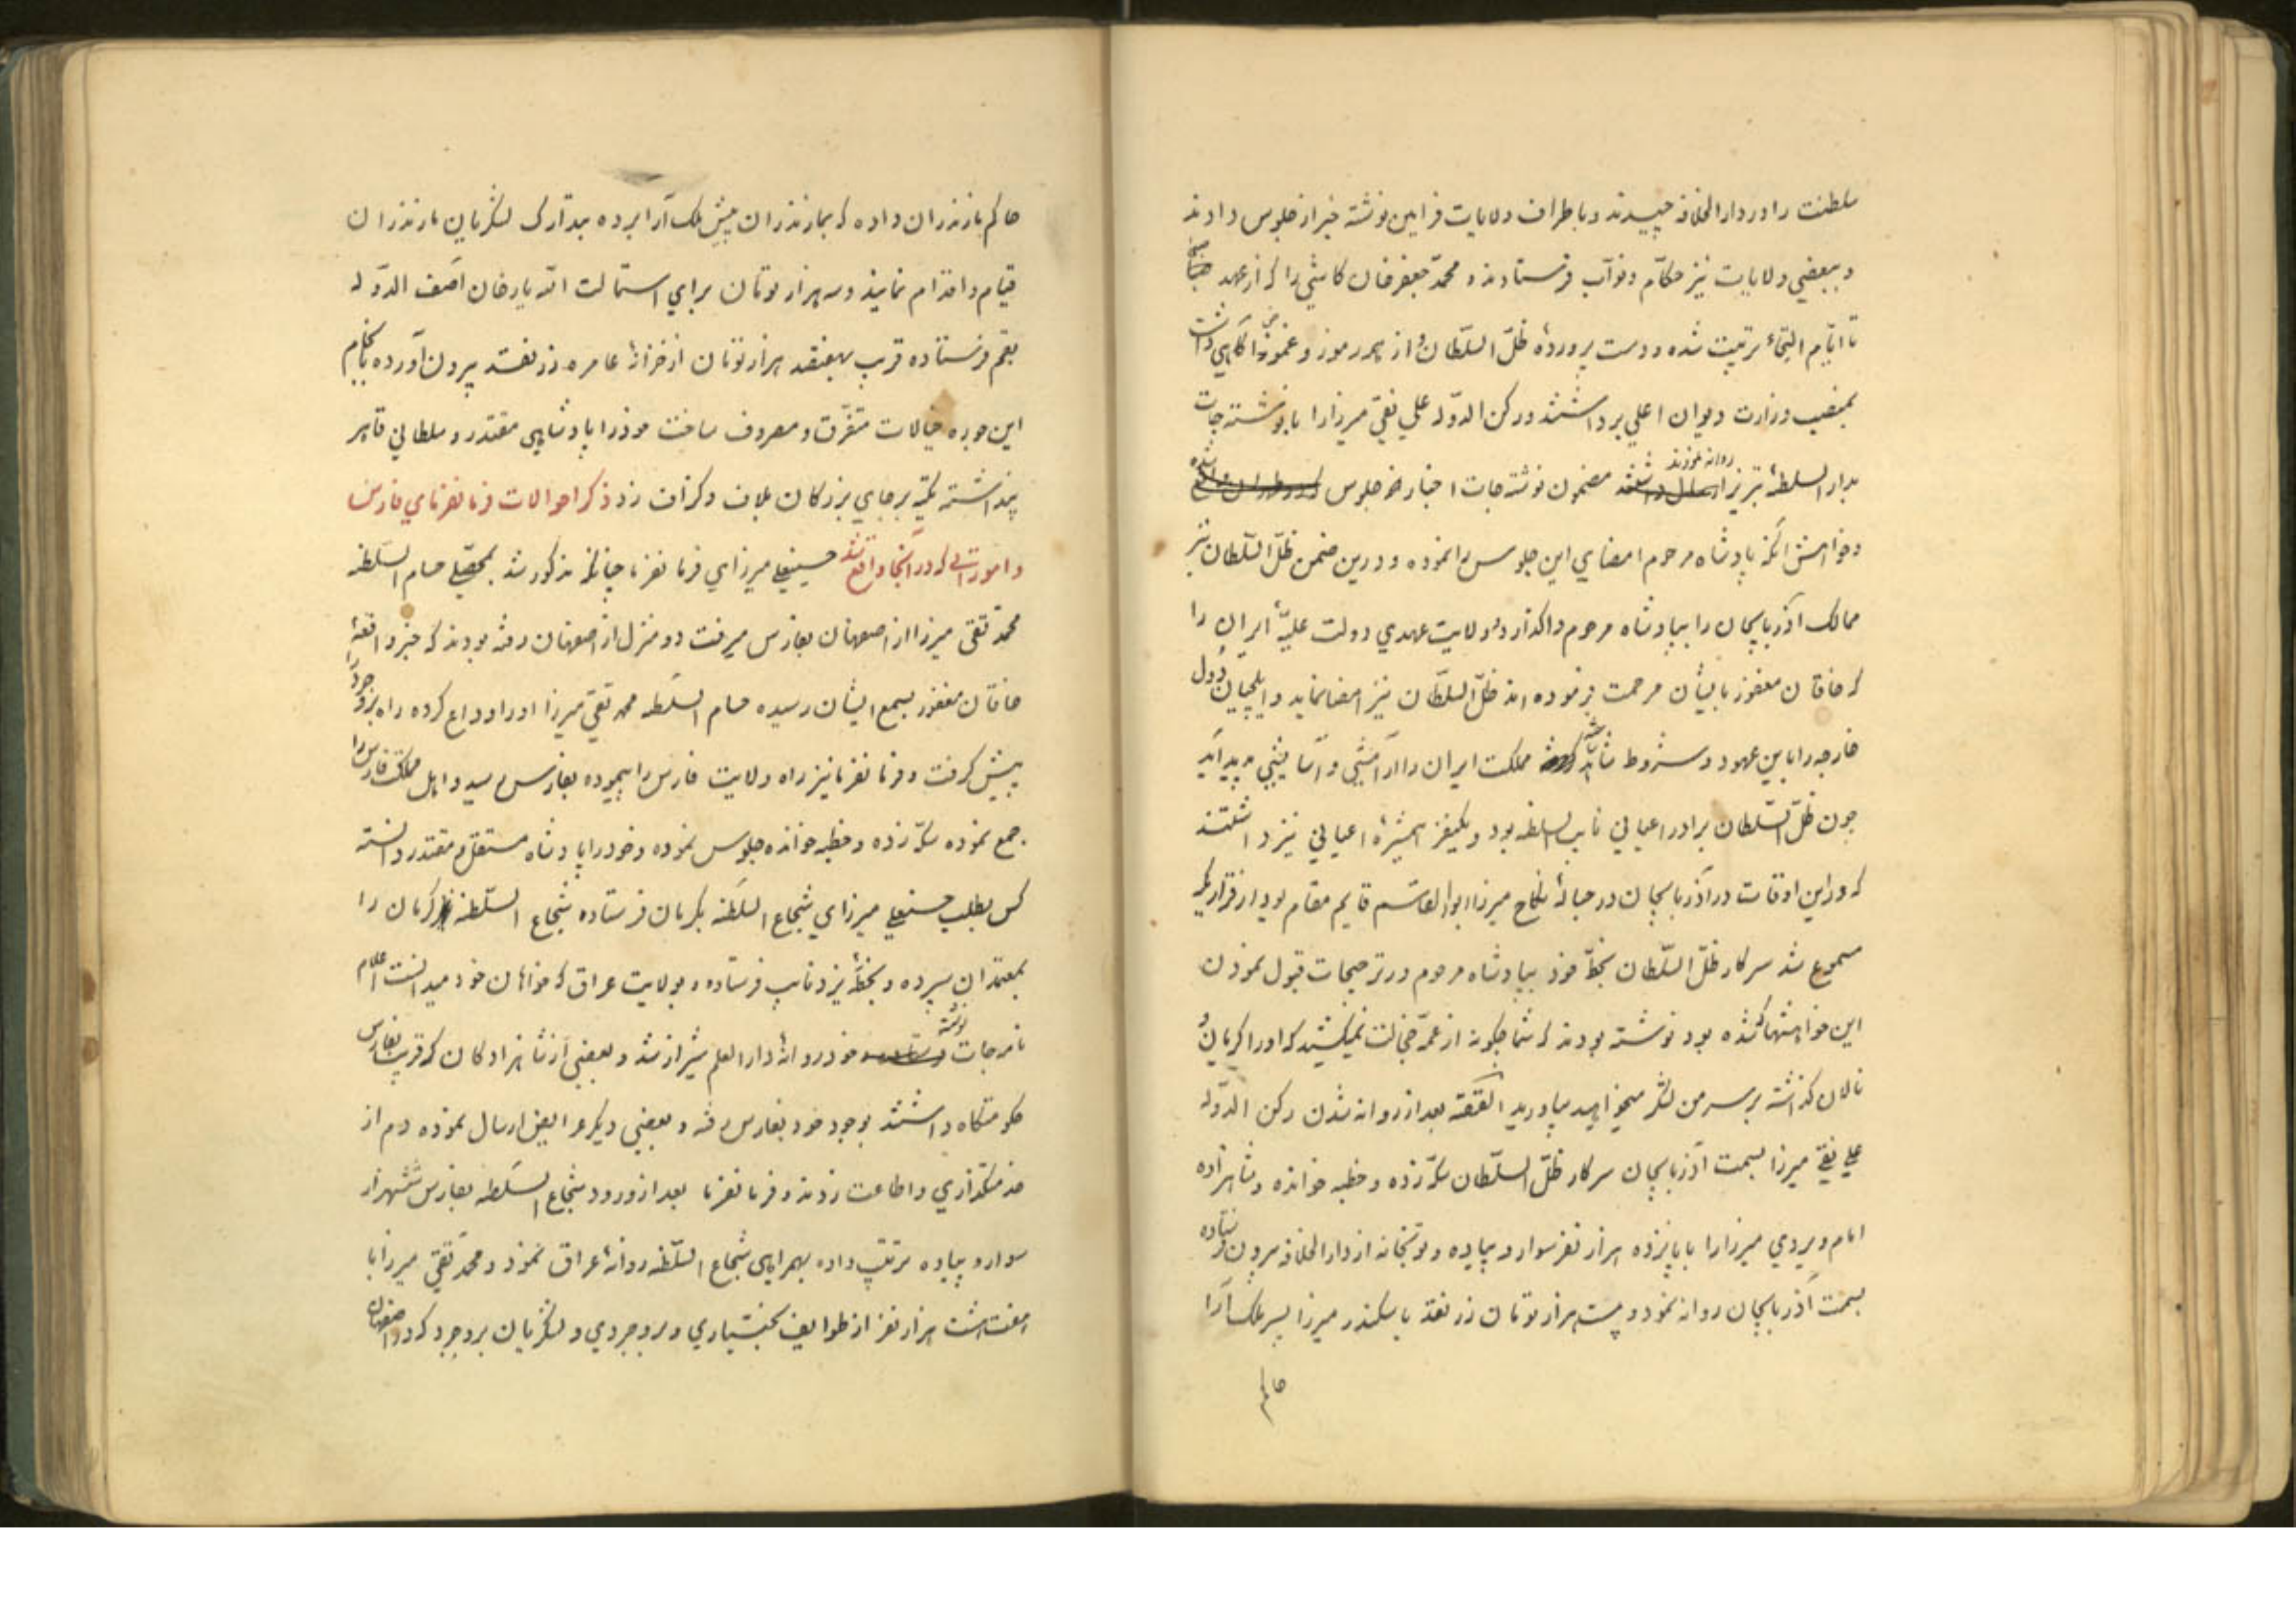 سلطنت را در دارالخلافه چیدند و باطراف ولایات فرامین نوشته خبر از جلوس دادند
و ببعضی ولایات نیز حکّام و نوّاب فرستادند و محمّد جعفر خان کاشی را که از عهد صبا
تا ایّام التجاء تربیت شده و دست پروردهٔ ظلّ السّلطان و از سر رموز و غموض آگاهی داشت
بمنصب وزارت دیوان اعلی برداشتند و رکن الدّوله علی نقی میرزا را با نوشته جات
بدار السلطنهٔ تبریز روانه نمودند مضمون نوشته جات اخبار خود جلوس
و خواهش آنکه پادشاه مرحوم امضای این جلوس را نموده و درین ضمن ظلّ السّلطان نیز
ممالک آذربایجان را بپادشاه مرحوم واگذارد و ولایت عهدی دولت علیّهٔ ایران را
که خاقان مغفور بایشان مرحمت فرموده اند ظلّ السلطان نیز امضا نماید و ایلچیان دول
خارجه را مابین عهود و شروط شاهد مملکت ایران را آرامشی و آسایشی پدید آید
چون ظلّ السّلطان برادر اعیانی نایب السلطنه بود و یکنفر همشیرهٔ اعیانی نیز داشتند
که در این اوقات در آذربایجان در حبالهٔ نکاح میرزا ابوالقاسم قایم مقام بود از قراریکه
مسموع شد سرکار ظلّ السّلطان بخطّ خود بپادشاه مرحوم در ترجیحات قبول نمودن
این خواهشها که شده بود نوشته بودند که شما چگونه از عمّه خجالت نمیکشید که او را گریان و
نالان گذاشته بر سر من لشکر میخواهید بیاورید القصّه بعد از روانه شدن رکن الدّوله
علی نقی میرزا بسمت آذربایجان سرکار ظلّ السّلطان سکّه زده و خطبه خوانده و شاهزاده
امام ویردی میرزا را با پانزده هزار نفر سوار و پیاده و توپخانه از دارالخلافه بیرون فرستاده
بسمت آذربایجان روانه نمود و بیست هزار تومان زر نقد باسکندر میرزا پسر ملک آرا
حاکم
حاکم مازندران داده که بمازندران پیش ملک آرا برده بتدارک لشکریان مازندران
قیام و اقدام نمایند و سه هزار تومان برای استمالت الله یار خان آصف الدّوله
بقم فرستاده قریب بهفتصد هزار تومان از خزانهٔ عامره زر نقد بیرون آورده بانجام
این جوره خیالات متفرّق و مصروف ساخت خود را پادشاهی مقتدر و سلطانی قاهر
پنداشته تکیه بر جای بزرگان بلاف و گزاف زد ذکر احوالات فرمانفرمای فارس
و اموراتی که در آنجا واقع شد حسینعلی میرزای فرمانفرما چنانکه مذکور شد بمحصّلی حسام السّلطنه
محمّد تقی میرزا از اصفهان بفارس میرفت دو منزل از اصفهان رفته بودند که خبر واقعهٔ
خاقان مغفور بسمع ایشان رسیده حسام السّلطنه محمد تقی میرزا او را وداع کرده راه بروجرد را
پیش گرفت و فرمانفرما نیز راه ولایت فارس را پیموده بفارس رسید و اهل مملکت فارس را
جمع نموده سکّه زده و خطبه خوانده جلوس نموده و خود را پادشاه مستقل و مقتدر دانسته
کس بطلب حسنعلی میرزای شجاع السلطنه بکرمان فرستاده شجاع السّلطنه کرمان را
بمعتمدان سپرده و بخطّهٔ یزد نایب فرستاده و بولایت عراق که خواهان خود میدانست اعلام
نامه جات نوشته خود روانهٔ دارالعلم شیراز شد و بعضی از شاهزادگان که قریب بفارس
حکومتگاه داشتند بوجود خود بفارس رفته و بعضی دیگر عرایض ارسال نموده دم از
خدمتگذاری و اطاعت زدند و فرمانفرما بعد از ورود شجاع السّلطنه بفارس ششهزار
سوار و پیاده ترتیب داده بهمراهی شجاع السّلطنه روانهٔ عراق نمود و محمّد تقی میرزا با
هفت هشت هزار نفر از طوایف بختیاری و بروجردی و لشکریان بروجرد که در اصفهان